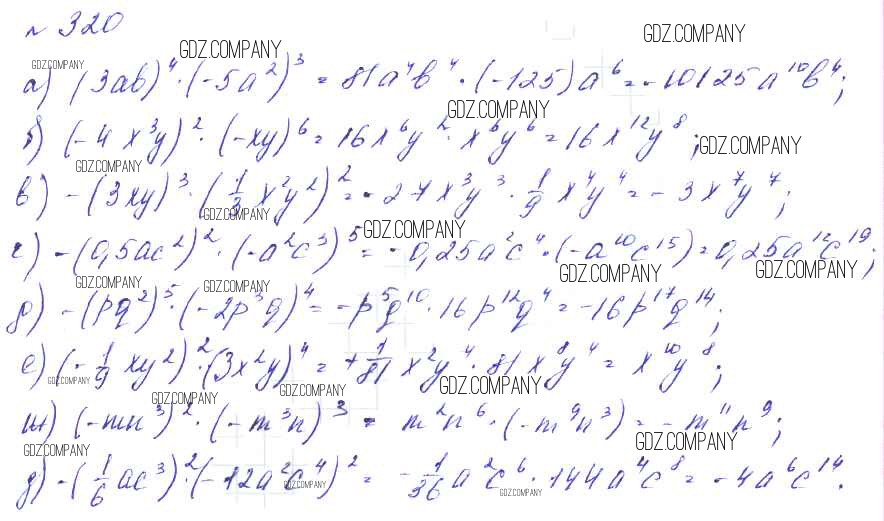 № 320
GDZ.COMPANY GDZ.COMPANY GDZ.COMPANY
а) (3ab)⁴ · (-5a²)³ = 81a⁴b⁴ · (-125)a⁶ = -10125a¹⁰b⁴;
GDZ.COMPANY
б) (-4x³y)² · (-xy)⁶ = 16x⁶y² · x⁶y⁶ = 16x¹²y⁸;
GDZ.COMPANY GDZ.COMPANY
в) -(3xy)³ · (1/3 x²y²)² = -27x³y³ · 1/9 x⁴y⁴ = -3x⁷y⁷;
GDZ.COMPANY GDZ.COMPANY
г) -(0,5ac²)² · (-a²c³)⁵ = -0,25a²c⁴ · (-a¹⁰c¹⁵) = 0,25a¹²c¹⁹;
GDZ.COMPANY GDZ.COMPANY GDZ.COMPANY GDZ.COMPANY
д) -(pq²)⁵ · (-2p³q)⁴ = -p⁵q¹⁰ · 16p¹²q⁴ = -16p¹⁷q¹⁴;
е) (-1/9 xy²)² · (3x²y)⁴ = +1/81 x²y⁴ · 81x⁸y⁴ = x¹⁰y⁸;
GDZ.COMPANY GDZ.COMPANY GDZ.COMPANY GDZ.COMPANY
ж) (-mn³)² · (-m³n)³ = m²n⁶ · (-m⁹n³) = -m¹¹n⁹;
GDZ.COMPANY GDZ.COMPANY
з) -(1/6 ac³)² · (-12a²c⁴)² = -1/36 a²c⁶ · 144a⁴c⁸ = -4a⁶c¹⁴.
GDZ.COMPANY GDZ.COMPANY